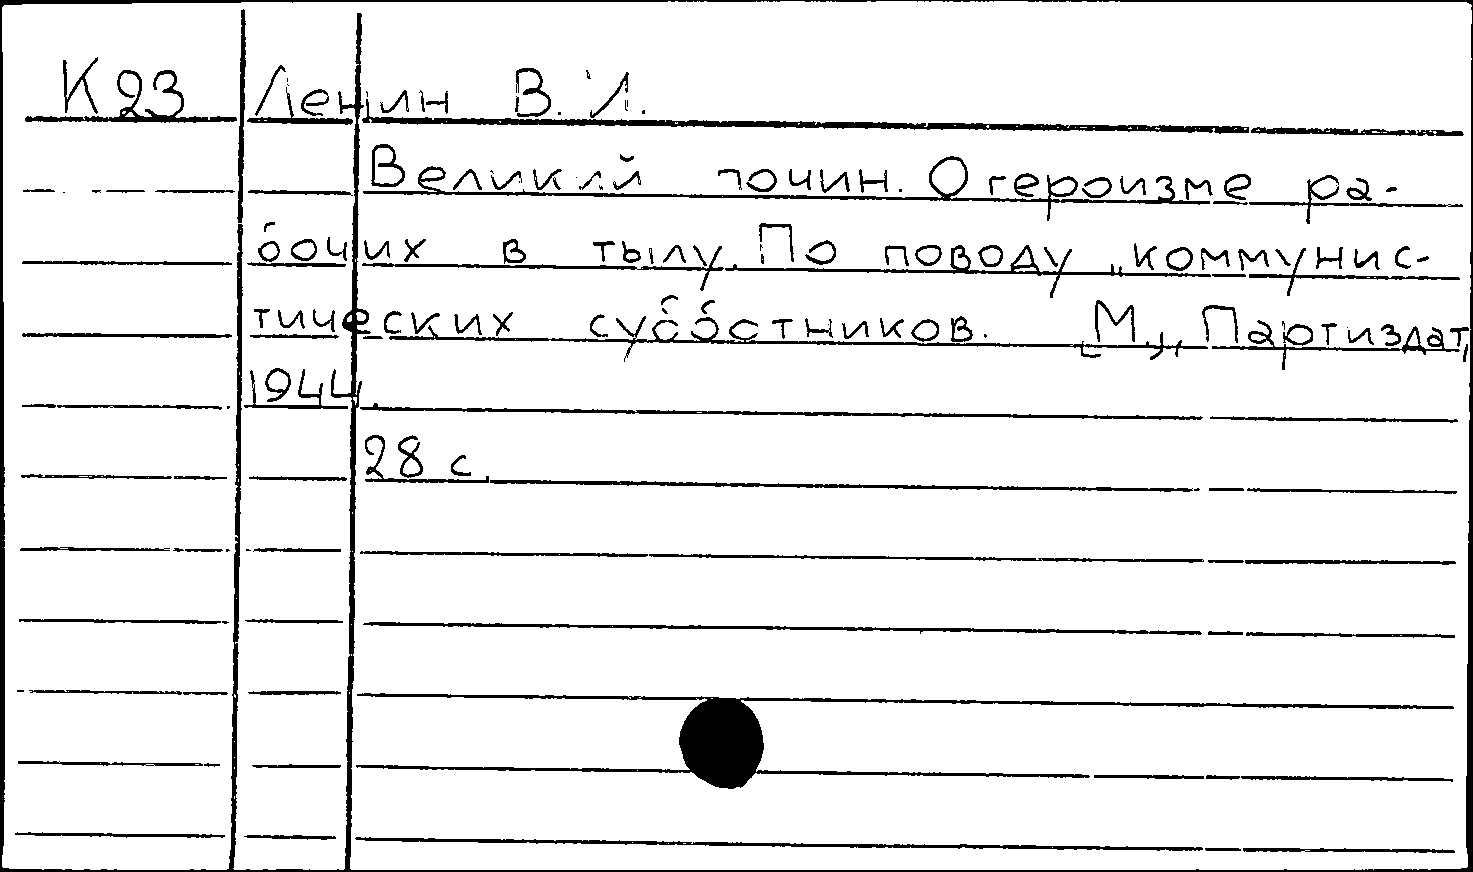 К 23 Ленин В. И.
Великий почин. О героизме ра-
бочих в тылу. По поводу „коммунис-
тических субботников. [М.], Партиздат,
1944.
28 с.